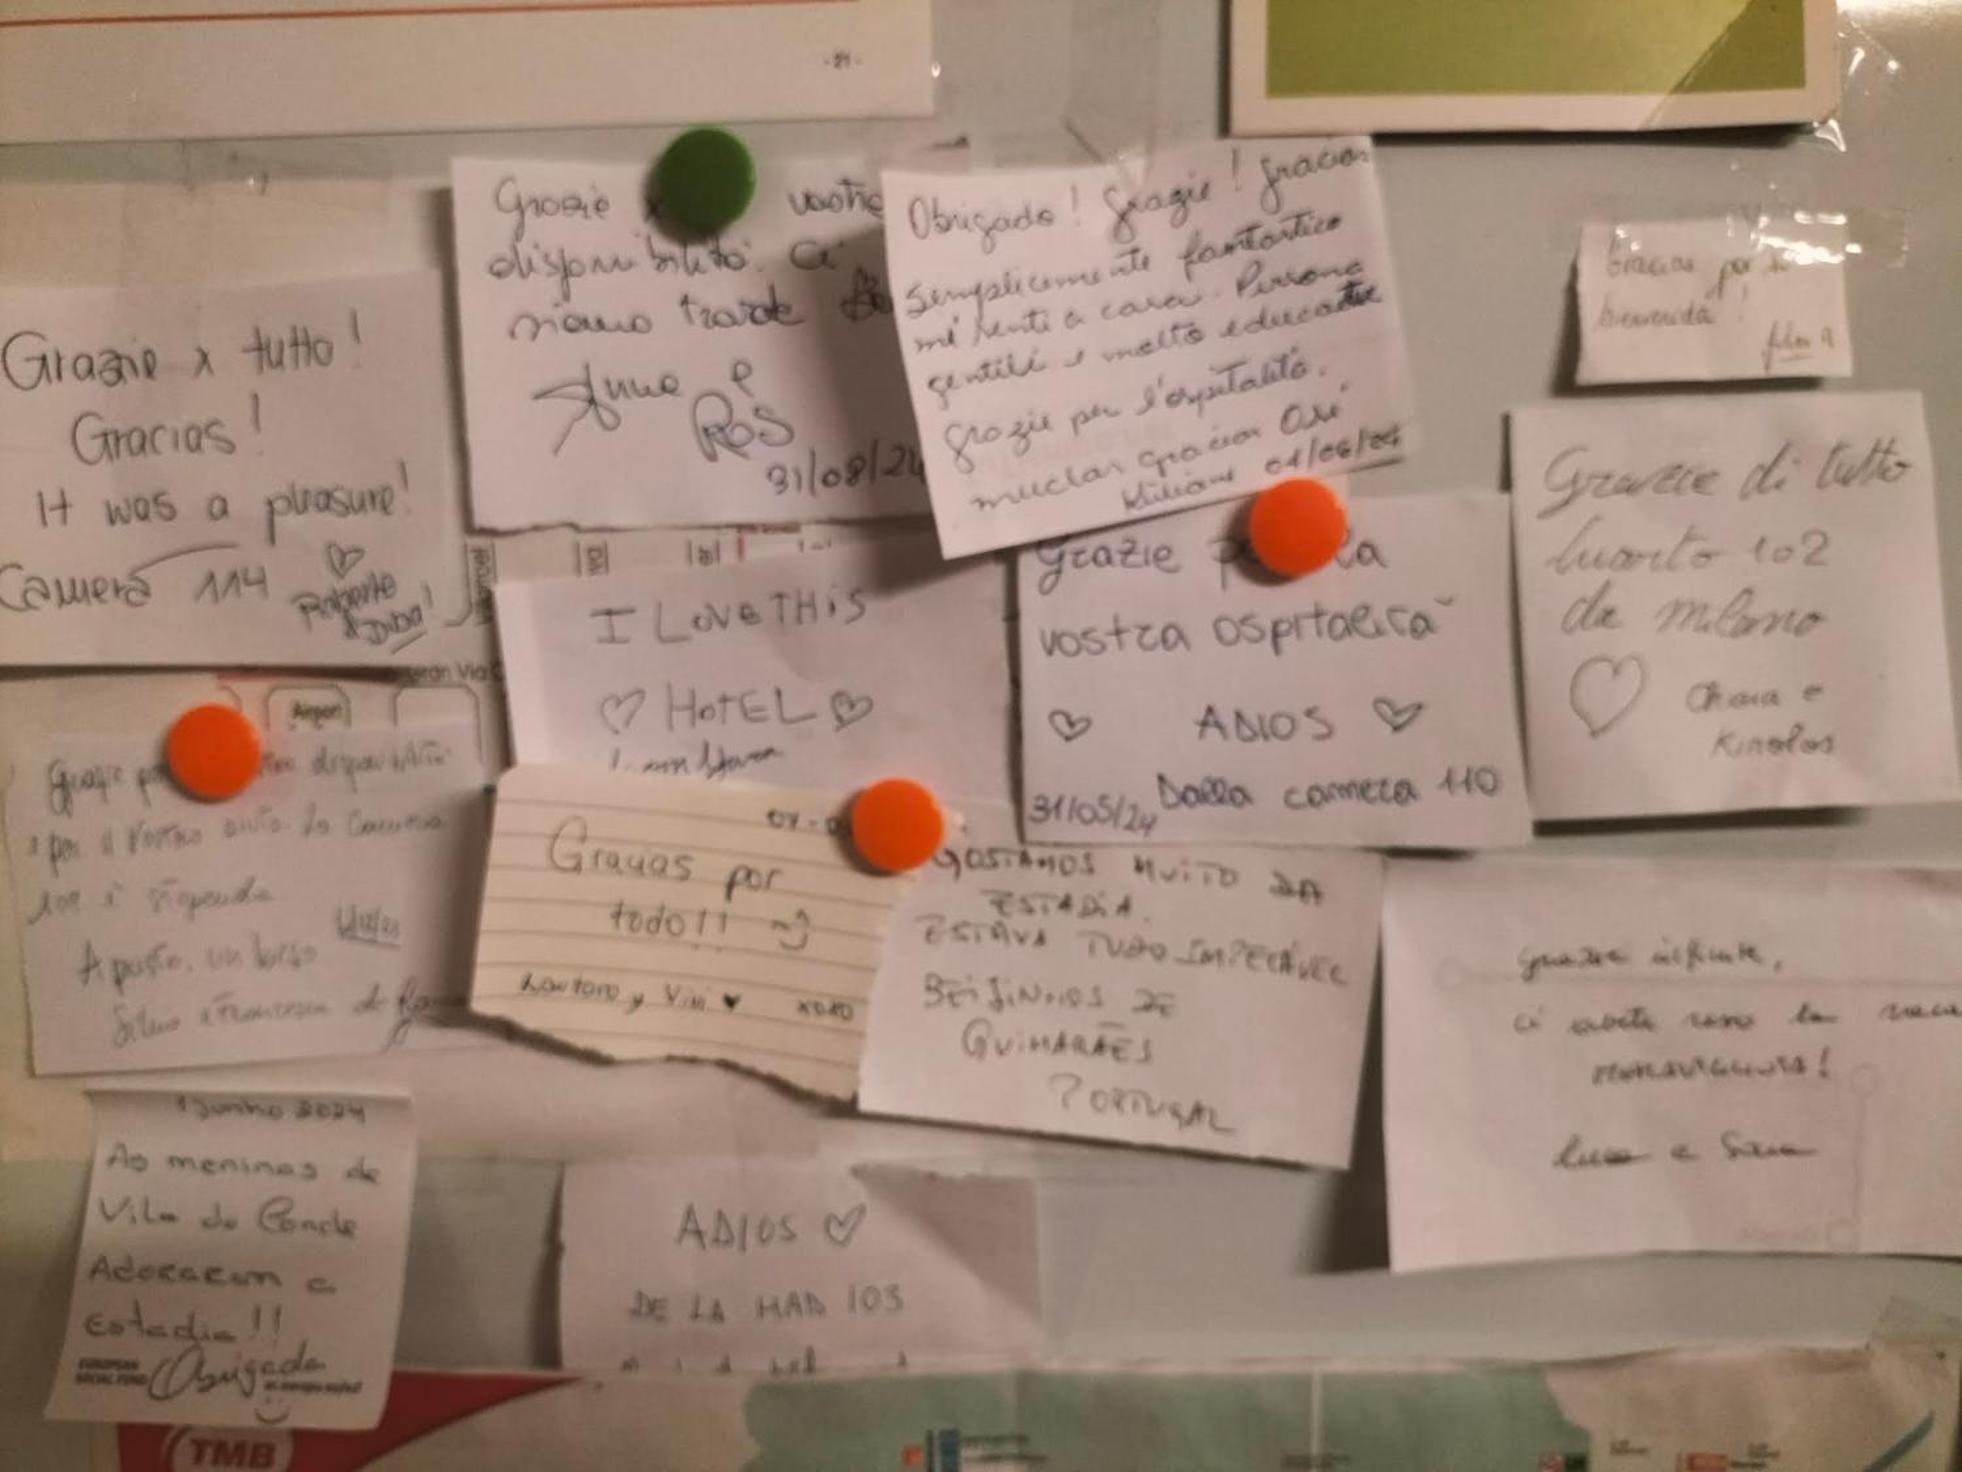 - 21 -
Grazie x vostra
disponibilità. Ci
siamo trovate
Anna e
Ros
31/08/24
Obrigado! Grazie! Gracias
Semplicemente fantastico
mi sentì a casa. Persone
gentili e molto educate
Grazie per l'ospitalità.
muchas gracias
01/06/24
Gracias por
bienvenida!
Grazie x tutto!
Gracias!
It was a pleasure!
Camera 114
Roberto
I LOVE THIS
HOTEL
Grazie la
vostra ospitalità
ADIOS
Dalla camera 110
31/05/24
Grazie di tutto
Quarto 102
da Milano
Chiara e
Kirolos
Gran Via
Airport
Grazie disponibilità
x per il vostro aiuto. La Camera
è stupenda
A presto, un bacio
Silvia e Francesca
07-0
Gracias por
todo!!
Lautaro y Vivi xoxo
GOSTAMOS MUITO DA
ESTADIA.
ESTAVA TUDO IMPECÁVEL
BEIJINHOS DE
GUIMARÃES
PORTUGAL
Grazie infinite,
ci avete reso la
MERAVIGLIOSA!
Luca e Sara
1 Junho 2024
As meninas de
Vila do Conde
Adoraram a
Estadia!!
Obrigada
EUROPEAN
SOCIAL FUND
ADIOS
DE LA HAB 103
TMB